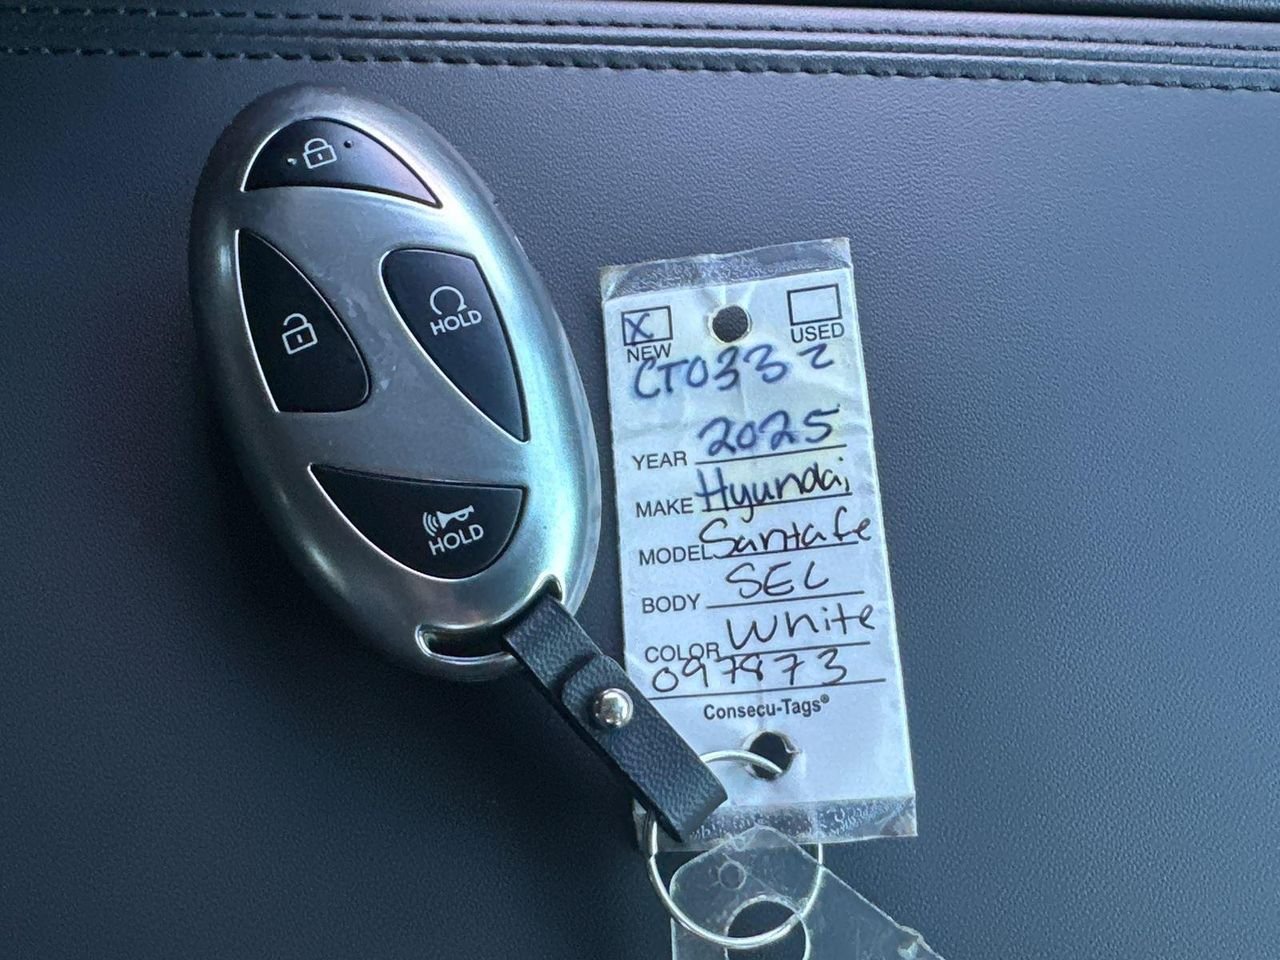 HOLD
HOLD
X
NEW USED
CT0332
YEAR 2025
MAKE Hyundai
MODEL Santafe
BODY SEL
COLOR White
097873
Consecu-Tags®